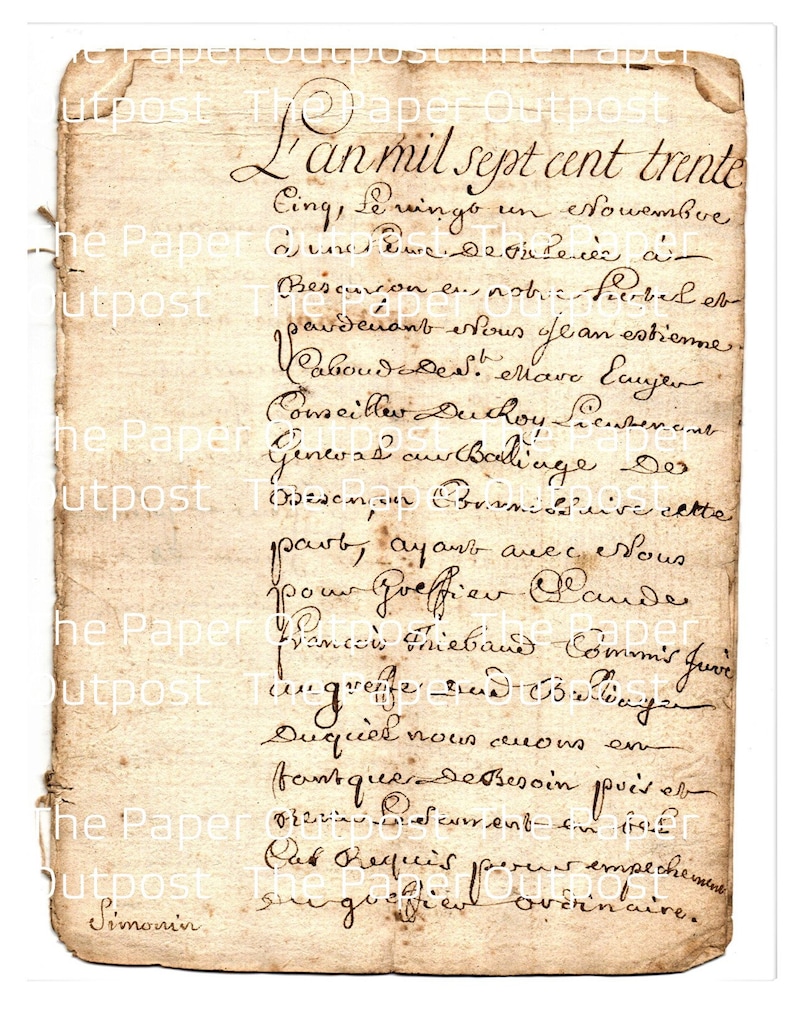 The Paper Outpost The Paper
Outpost The Paper Outpost
L'an mil sept cent trente
Cinq, Le vingt un Novembre
The Paper Outpost The Paper
à une heure De Relevée à
Outpost The Paper Outpost
Besançon en notre hostel et
pardevant Nous Jean estienne
Caboud De St. Marc
Conseiller Du Roy Lieutenant
The Paper Outpost The Paper
General au Balliage De
Outpost The Paper Outpost
Besançon Commissaire cette
part, ayant avec Nous
pour Greffier Claude
The Paper Outpost The Paper
francois Thiebaud Commis Juré
Outpost The Paper Outpost
au greffe dud Balliage
Duquel nous avons en
tant que De Besoin pris et
The Paper Outpost The Paper
Receu serment en tel
Cas Requis pour empechement
Outpost The Paper Outpost
du greffier ordinaire.
Simonin